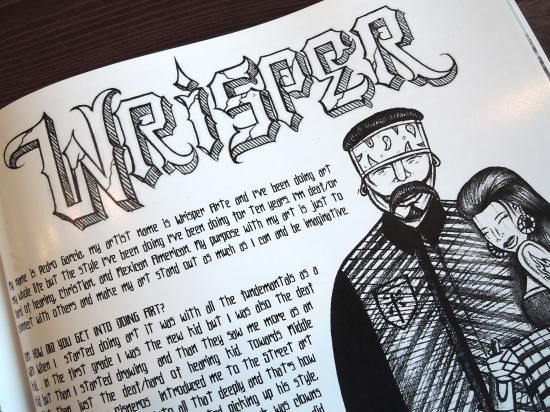 WRISPER
My name is Pedro Garcia, my artist name is Wrisper Arte and I've been doing art
my whole life but the style I've been doing I've been doing for ten years. I'm deaf/or
hard of hearing, Christian, and Mexican American. My purpose with my art is just to
connect with others and make my art stand out as much as I can and be imaginative.
HOW DID YOU GET INTO DOING ART?
when I started doing art it was with all the fundementals as a
kid. In the first grade I was the new kid but I was also the deaf
kid but than I started drawing and than they saw me more as an
than just the deaf/hard of hearing kid. Towards middle
introduced me to the street art
into all that deeply and that's how
started picking up his style.
was clowns